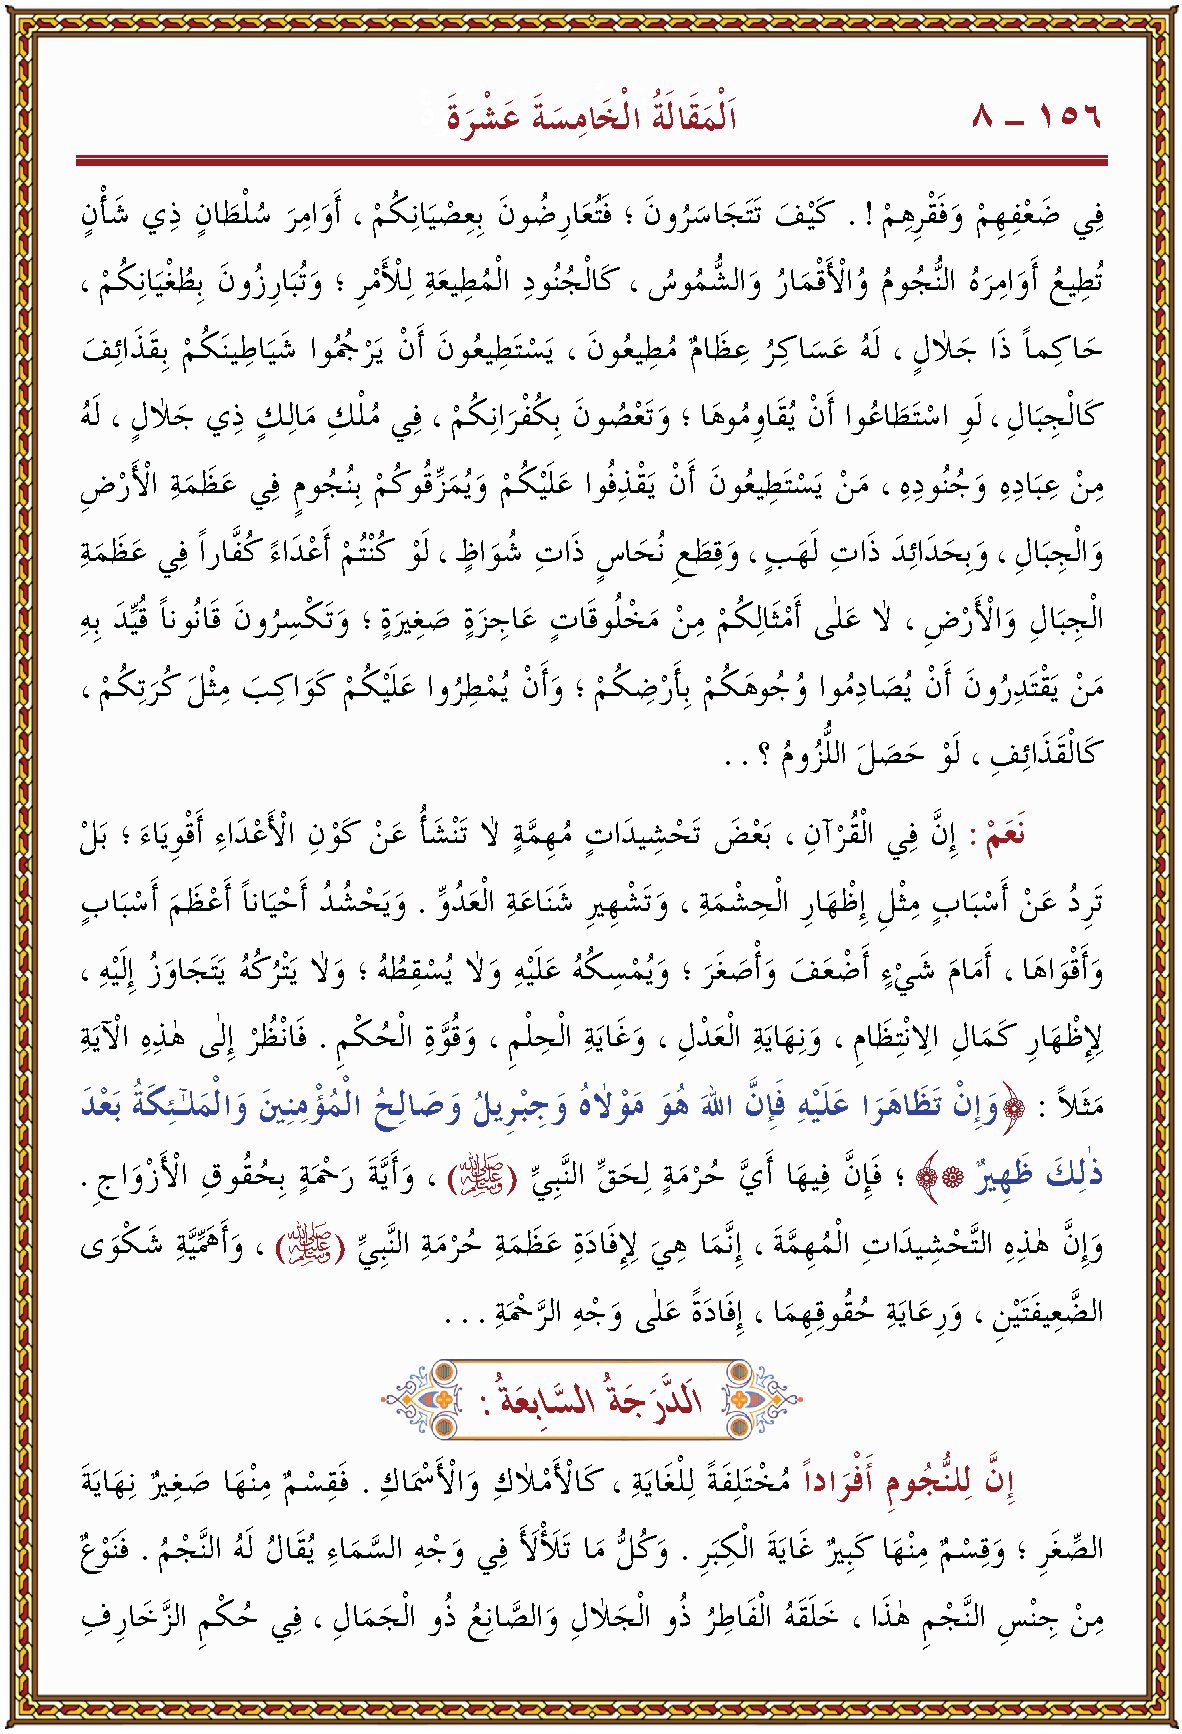 ١٥٦ – ٨ اَلْمَقَالَةُ الْخَامِسَةَ عَشْرَةَ
فِي ضَعْفِهِمْ وَفَقْرِهِمْ ! . كَيْفَ تَتَجَاسَرُونَ ؛ فَتُعَارِضُونَ بِعِصْيَانِكُمْ ، أَوَامِرَ سُلْطَانٍ ذِي شَأْنٍ
تُطِيعُ أَوَامِرَهُ النُّجُومُ وُالْأَقْمَارُ وَالشُّمُوسُ ، كَالْجُنُودِ الْمُطِيعَةِ لِلْأَمْرِ ؛ وَتُبَارِزُونَ بِطُغْيَانِكُمْ ،
حَاكِماً ذَا جَلَالٍ ، لَهُ عَسَاكِرُ عِظَامٌ مُطِيعُونَ ، يَسْتَطِيعُونَ أَنْ يَرْجُمُوا شَيَاطِينَكُمْ بِقَذَائِفَ
كَالْجِبَالِ ، لَوِ اسْتَطَاعُوا أَنْ يُقَاوِمُوهَا ؛ وَتَعْصُونَ بِكُفْرَانِكُمْ ، فِي مُلْكِ مَالِكٍ ذِي جَلَالٍ ، لَهُ
مِنْ عِبَادِهِ وَجُنُودِهِ ، مَنْ يَسْتَطِيعُونَ أَنْ يَقْذِفُوا عَلَيْكُمْ وَيُمَزِّقُوكُمْ بِنُجُومٍ فِي عَظَمَةِ الْأَرْضِ
وَالْجِبَالِ ، وَبِحَدَائِدَ ذَاتِ لَهَبٍ ، وَقِطَعِ نُحَاسٍ ذَاتِ شُوَاظٍ ، لَوْ كُنْتُمْ أَعْدَاءً كُفَّاراً فِي عَظَمَةِ
الْجِبَالِ وَالْأَرْضِ ، لَا عَلَى أَمْثَالِكُمْ مِنْ مَخْلُوقَاتٍ عَاجِزَةٍ صَغِيرَةٍ ؛ وَتَكْسِرُونَ قَانُوناً قُيِّدَ بِهِ
مَنْ يَقْتَدِرُونَ أَنْ يُصَادِمُوا وُجُوهَكُمْ بِأَرْضِكُمْ ؛ وَأَنْ يُمْطِرُوا عَلَيْكُمْ كَوَاكِبَ مِثْلَ كُرَتِكُمْ ،
كَالْقَذَائِفِ ، لَوْ حَصَلَ اللُّزُومُ ؟ . .
نَعَمْ : إِنَّ فِي الْقُرْآنِ ، بَعْضَ تَحْشِيدَاتٍ مُهِمَّةٍ لَا تَنْشَأُ عَنْ كَوْنِ الْأَعْدَاءِ أَقْوِيَاءَ ؛ بَلْ
تَرِدُ عَنْ أَسْبَابٍ مِثْلِ إِظْهَارِ الْحِشْمَةِ ، وَتَشْهِيرِ شَنَاعَةِ الْعَدُوِّ . وَيَحْشُدُ أَحْيَاناً أَعْظَمَ أَسْبَابٍ
وَأَقْوَاهَا ، أَمَامَ شَيْءٍ أَضْعَفَ وَأَصْغَرَ ؛ وَيُمْسِكُهُ عَلَيْهِ وَلَا يُسْقِطُهُ ؛ وَلَا يَتْرُكُهُ يَتَجَاوَزُ إِلَيْهِ ،
لِإِظْهَارِ كَمَالِ الِانْتِظَامِ ، وَنِهَايَةِ الْعَدْلِ ، وَغَايَةِ الْحِلْمِ ، وَقُوَّةِ الْحُكْمِ . فَانْظُرْ إِلَى هٰذِهِ الْآيَةِ
مَثَلاً : ﴿وَإِنْ تَظَاهَرَا عَلَيْهِ فَإِنَّ اللهَ هُوَ مَوْلَاهُ وَجِبْرِيلُ وَصَالِحُ الْمُؤْمِنِينَ وَالْمَلٰٓئِكَةُ بَعْدَ
ذٰلِكَ ظَهِيرٌ ۞﴾ ؛ فَإِنَّ فِيهَا أَيَّ حُرْمَةٍ لِحَقِّ النَّبِيِّ (ﷺ) ، وَأَيَّةَ رَحْمَةٍ بِحُقُوقِ الْأَزْوَاجِ .
وَإِنَّ هٰذِهِ التَّحْشِيدَاتِ الْمُهِمَّةَ ، إِنَّمَا هِيَ لِإِفَادَةِ عَظَمَةِ حُرْمَةِ النَّبِيِّ (ﷺ) ، وَأَهَمِّيَّةِ شَكْوَى
الضَّعِيفَتَيْنِ ، وَرِعَايَةِ حُقُوقِهِمَا ، إِفَادَةً عَلَى وَجْهِ الرَّحْمَةِ . . .
اَلدَّرَجَةُ السَّابِعَةُ :
إِنَّ لِلنُّجُومِ أَفْرَاداً مُخْتَلِفَةً لِلْغَايَةِ ، كَالْأَمْلَاكِ وَالْأَسْمَاكِ . فَقِسْمٌ مِنْهَا صَغِيرٌ نِهَايَةَ
الصِّغَرِ ؛ وَقِسْمٌ مِنْهَا كَبِيرٌ غَايَةَ الْكِبَرِ . وَكُلُّ مَا تَلَأْلَأَ فِي وَجْهِ السَّمَاءِ يُقَالُ لَهُ النَّجْمُ . فَنَوْعٌ
مِنْ جِنْسِ النَّجْمِ هٰذَا ، خَلَقَهُ الْفَاطِرُ ذُو الْجَلَالِ وَالصَّانِعُ ذُو الْجَمَالِ ، فِي حُكْمِ الزَّخَارِفِ